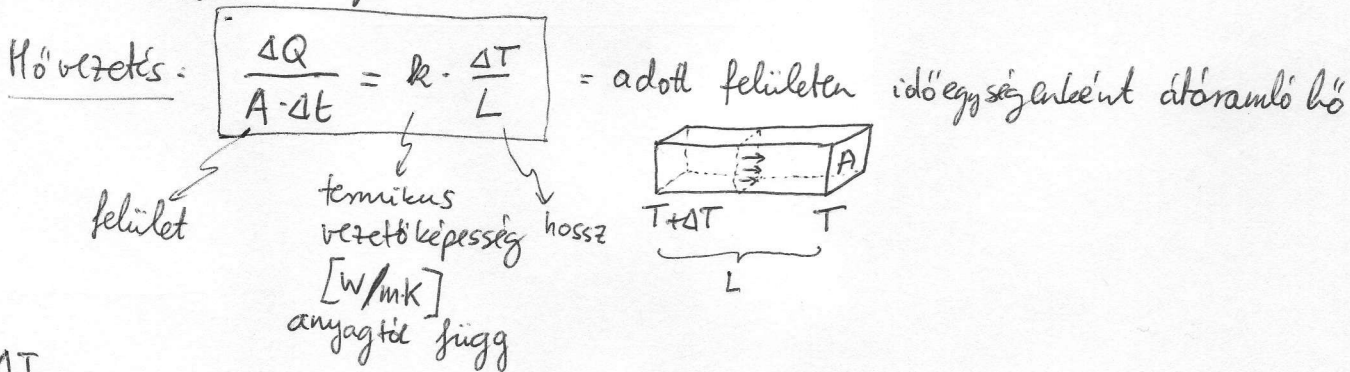 Hővezetés: ΔQ / A·Δt = k · ΔT / L = adott felületen időegységenként átáramló hő
felület
termikus vezetőképesség
[W/m·K]
anyagtól függ
hossz
A
T+ΔT
T
L
ΔT